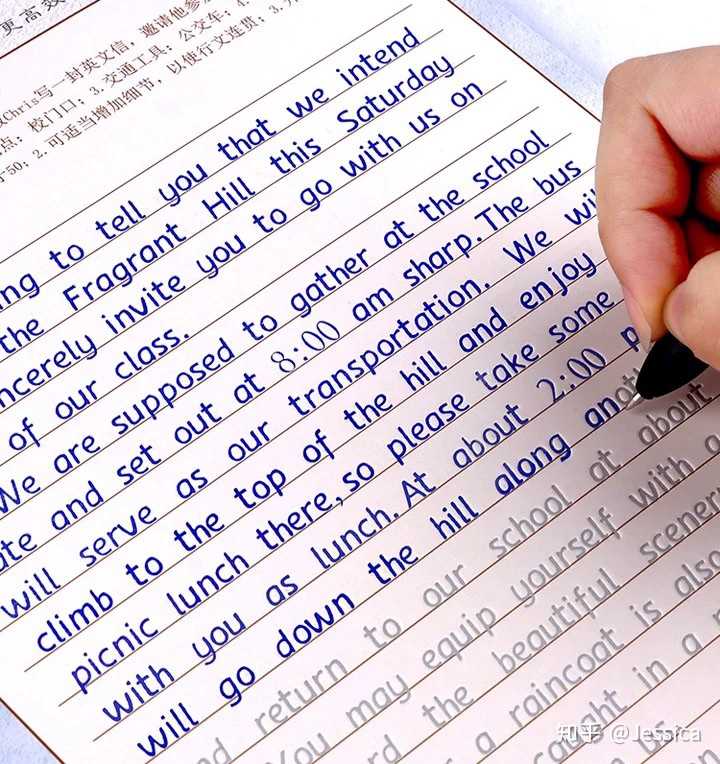 更高效
Chris写一封英文信，邀请他参
点：校门口；3.交通工具：公交车；4.
50；2.可适当增加细节，以使行文连贯；3.
to tell you that we intend
the Fragrant Hill this Saturday
invite you to go with us on
of our class.
We are supposed to gather at the school
and set out at 8:00 am sharp. The bus
will serve as our transportation. We
climb to the top of the hill and enjoy
picnic lunch there, so please take some
with you as lunch. At about 2:00 p
will go down the hill along
return to our school at about
You may equip yourself with a
the beautiful
a raincoat is also
caught in a
知乎 @Jessica